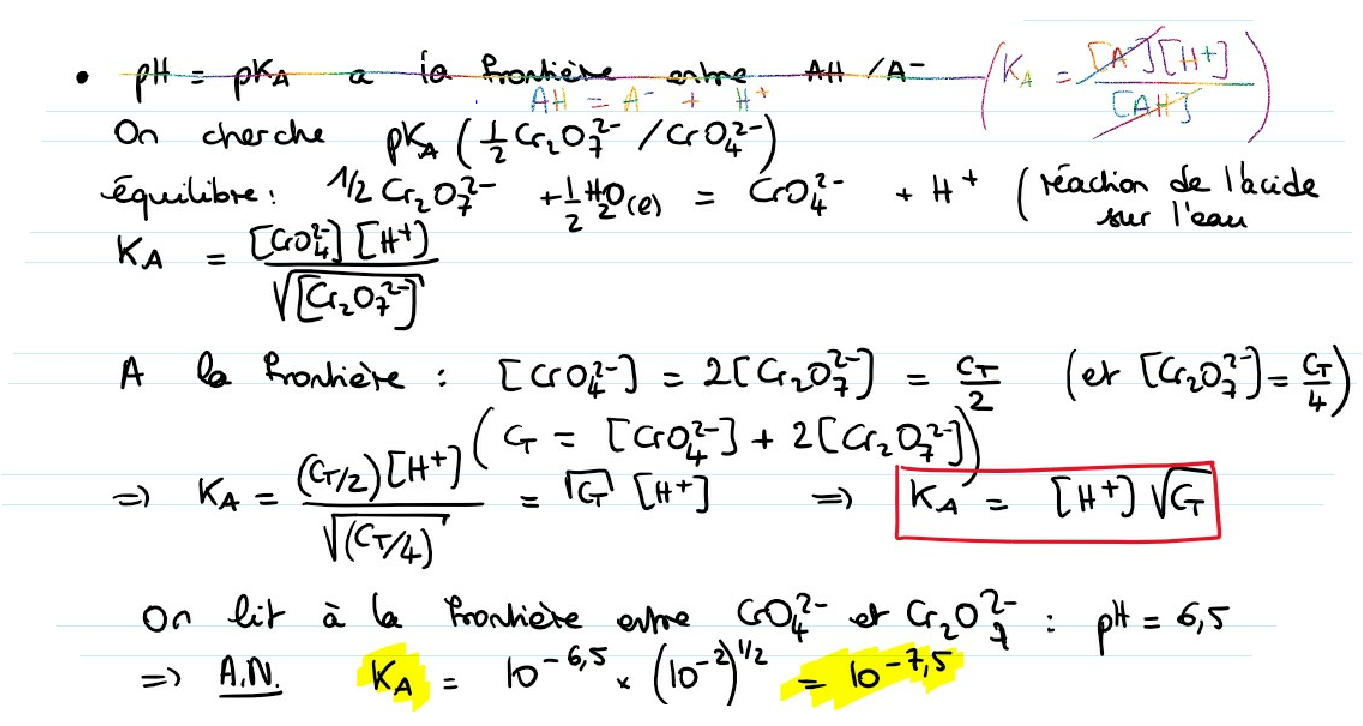 • pH = pKA a la frontière entre AH / A⁻ (KA = [A⁻][H⁺] / [AH])
AH = A⁻ + H⁺
On cherche pKA (½ Cr₂O₇²⁻ / CrO₄²⁻)
équilibre : 1/2 Cr₂O₇²⁻ + ½ H₂O(l) = CrO₄²⁻ + H⁺ (réaction de l'acide
sur l'eau
KA = [CrO₄²⁻][H⁺] / √[Cr₂O₇²⁻]
A la frontière : [CrO₄²⁻] = 2[Cr₂O₇²⁻] = CT/2 (et [Cr₂O₇²⁻] = CT/4)
(CT = [CrO₄²⁻] + 2[Cr₂O₇²⁻])
=> KA = (CT/2)[H⁺] / √(CT/4) = √CT [H⁺] => KA = [H⁺] √CT
On lit à la frontière entre CrO₄²⁻ et Cr₂O₇²⁻ : pH = 6,5
=> A.N. KA = 10^-6,5 × (10^-2)^1/2 = 10^-7,5